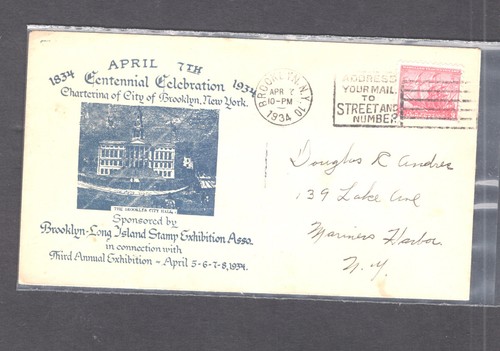 APRIL 7TH
1834 Centennial Celebration 1934
Chartering of City of Brooklyn, New York.
THE BROOKLYN CITY HALL
Sponsored by
Brooklyn-Long Island Stamp Exhibition Asso.
in connection with
Third Annual Exhibition - April 5-6-7-8, 1934.
BROOKLYN, N.Y. 10
APR 7
10-PM
1934
ADDRESS
YOUR MAIL
TO
STREET AND
NUMBER
Douglas R Andres
139 Lake Ave
Mariners Harbor
N.Y.